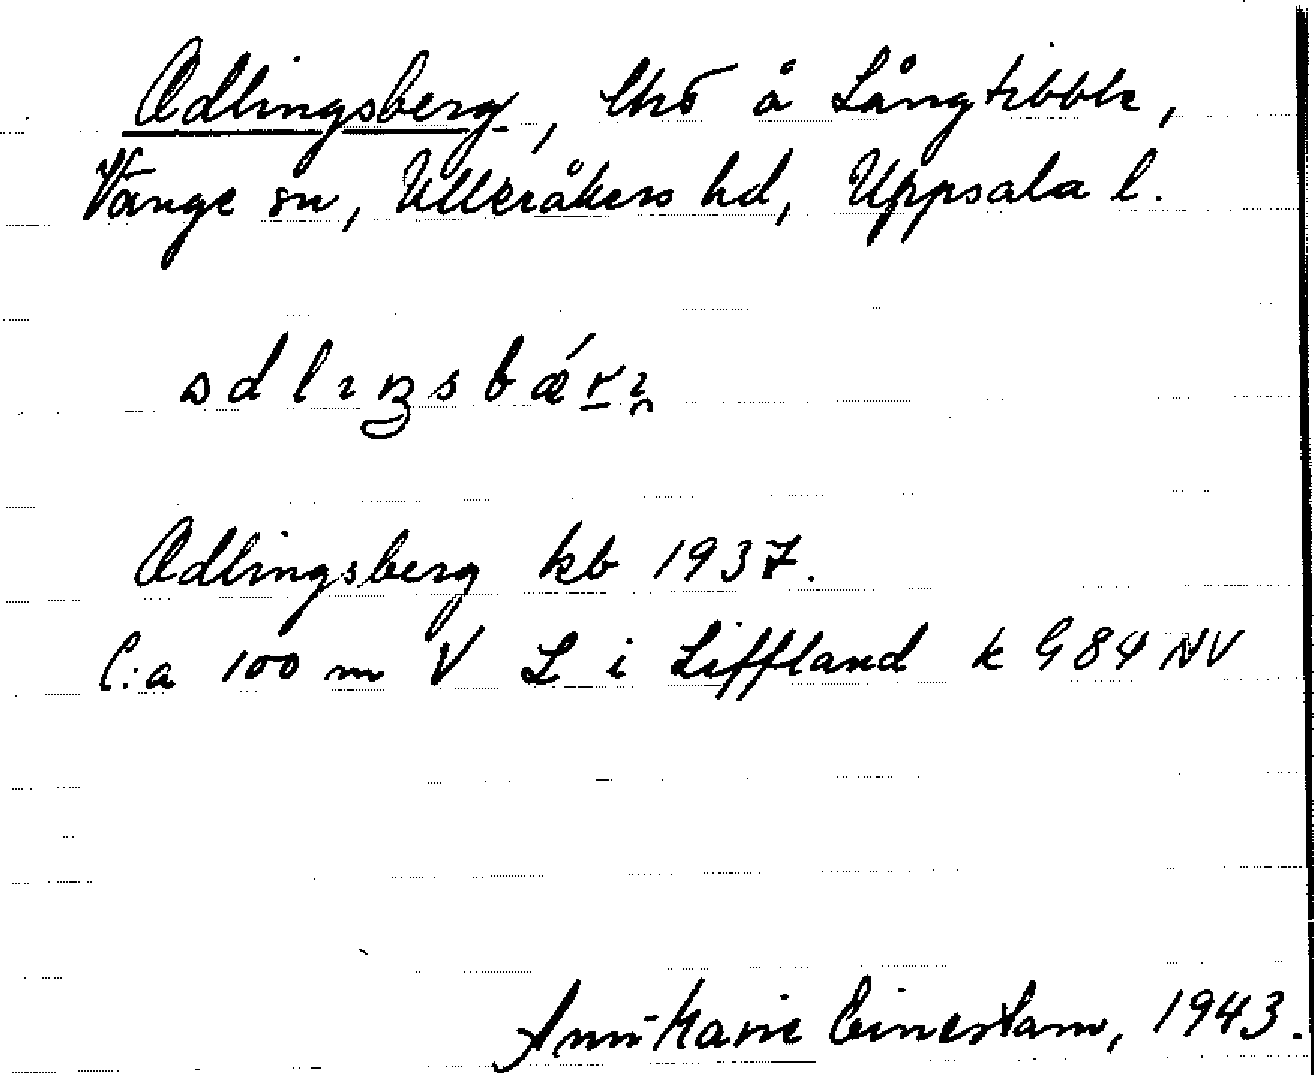 Adlingsberg, lhö å Långtibble,
Vänge sn, Ulleråkers hd, Uppsala l.
Adlingsberg kb 1937.
C:a 100 m V L i Liffland k G 84 NV
Ann-Marie 1943.